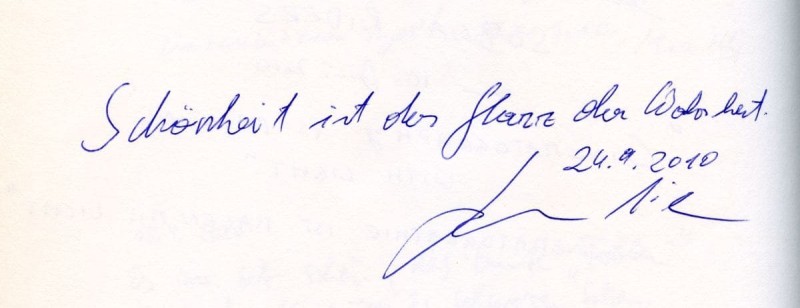 Schönheit ist der Glanz der Wahrheit.
24.9.2010